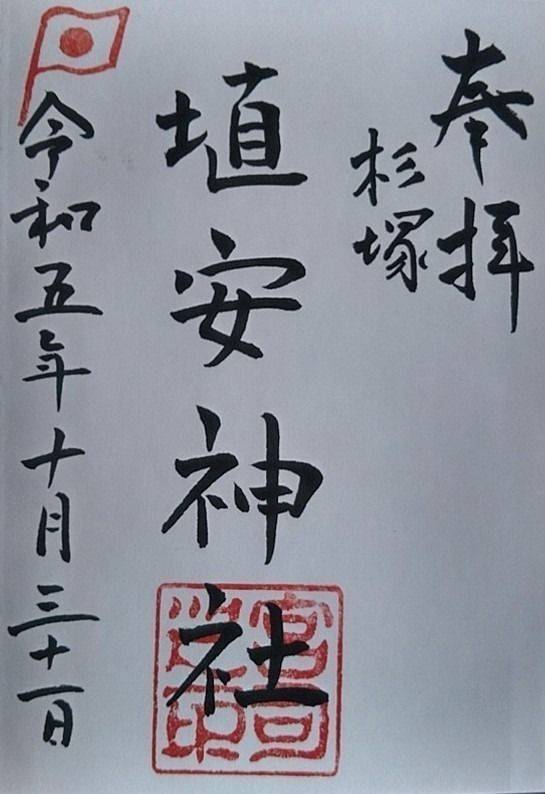 奉拝
杉塚
埴安神社
令和五年十月三十一日
宮司之印